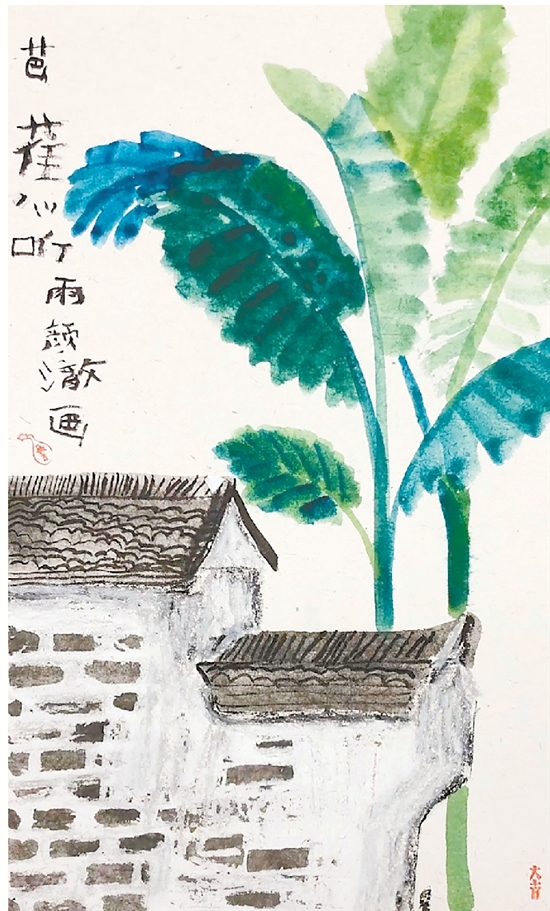 芭蕉听雨颜澈画
大吉